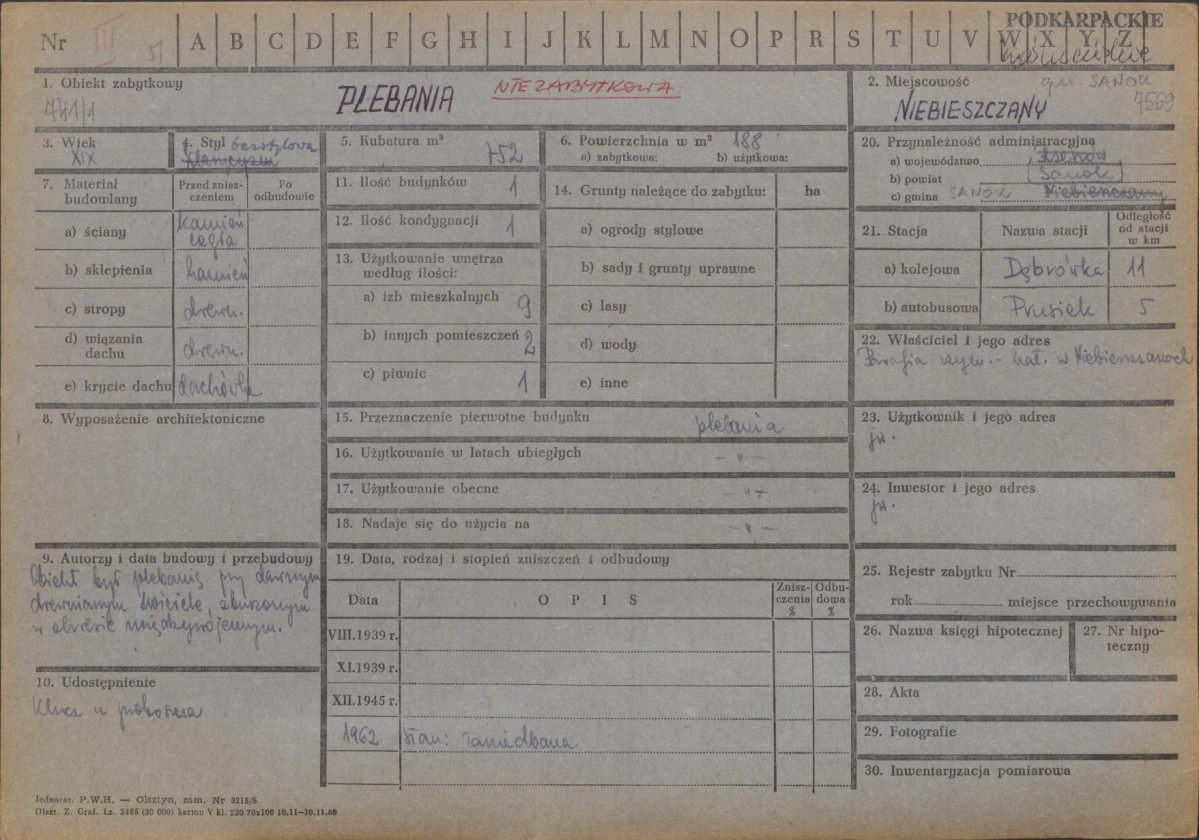 PODKARPACKIE
Nr IV 51 A B C D E F G H I J K L M N O P R S T U V W X Y Z
1. Obiekt zabytkowy
741/1
PLEBANIA
NIEZABYTKOWA
2. Miejscowość gm. SANOK
NIEBIESZCZANY 7569
3. Wiek
XIX
4. Styl bezstylowa
klasycyzm
5. Kubatura m³
752
6. Powierzchnia w m² 188
a) zabytkowa: b) użytkowa:
20. Przynależność administracyjną
a) województwo Rzeszów
b) powiat Sanok
c) gmina SANOK Niebieszczany
7. Materiał budowlany
Przed znisz-
czeniem
Po
odbudowie
a) ściany kamień
cegła
b) sklepienia kamień
c) stropy drewn.
d) wiązania
dachu drewn.
e) krycie dachu dachówka
11. Ilość budynków 1
12. Ilość kondygnacji 1
13. Użytkowanie wnętrza
według ilości:
a) izb mieszkalnych 9
b) innych pomieszczeń 2
c) piwnic 1
14. Grunty należące do zabytku: ha
a) ogrody stylowe
b) sady i grunty uprawne
c) lasy
d) wody
e) inne
21. Stacja Nazwa stacji
Odległość
od stacji
w km
a) kolejowa Dąbrówka 11
b) autobusowa Prusiek 5
22. Właściciel i jego adres
Parafia rzym.-kat. w Niebieszczanach
8. Wyposażenie architektoniczne
15. Przeznaczenie pierwotne budynku plebania
16. Użytkowanie w latach ubiegłych – " –
17. Użytkowanie obecne – " –
18. Nadaje się do użycia na – " –
23. Użytkownik i jego adres
jw.
24. Inwestor i jego adres
jw.
9. Autorzy i data budowy i przebudowy
Obiekt był plebanią przy dawnym
drewnianym kościele, zburzonym
w okresie międzywojennym.
10. Udostępnienie
Klucz u proboszcza
19. Data, rodzaj i stopień zniszczeń i odbudowy
Data O P I S
Znisz-
czenia
%
Odbu-
dowa
%
VIII.1939 r.
XI.1939 r.
XII.1945 r.
1962 Stan: zaniedbana
25. Rejestr zabytku Nr
rok miejsce przechowywania
26. Nazwa księgi hipotecznej
27. Nr hipo-
teczny
28. Akta
29. Fotografie
30. Inwentaryzacja pomiarowa
Jednoraz. P.W.H. — Olsztyn, zam. Nr 3215/S
Olszt. Z. Graf. Lz. 2485 (30 000) karton V kl. 220 70x100 10.11—30.11.60